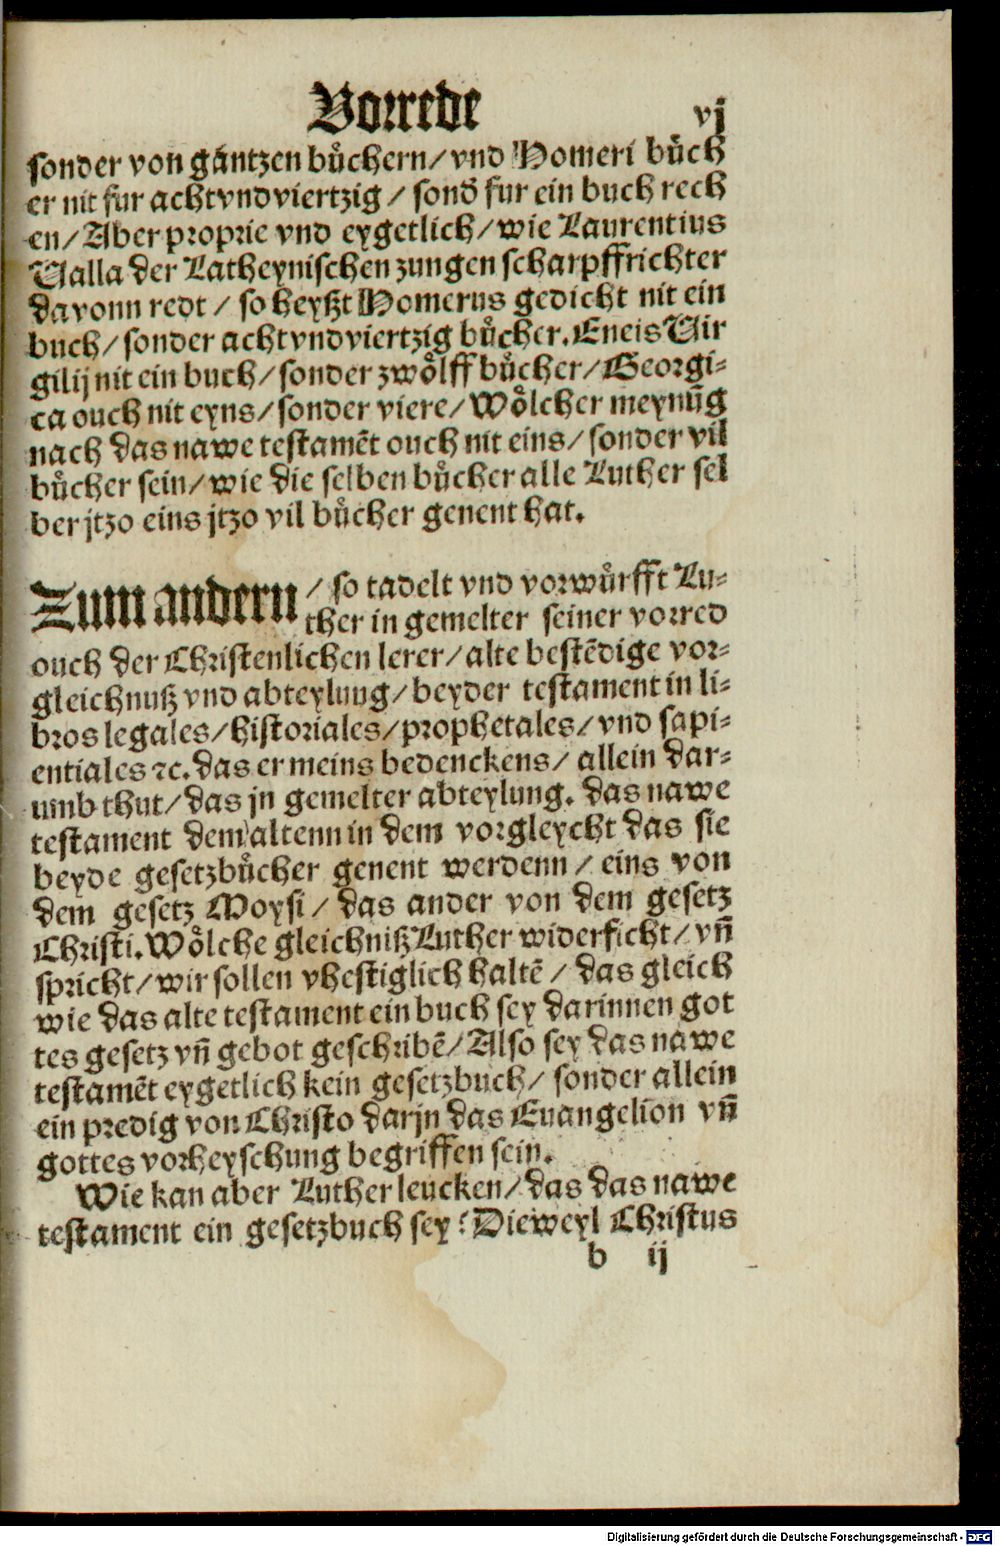 Vorrede vj
sonder von gäntzen bůchern/vnd Homeri bůch
er nit fur achtvndviertzig/ sond̕ fur ein buch rech
en/Aber proprie vnd eygetlich/wie Laurentius
Ualla der Latheynischen zungen scharpffrichter
davonn redt/ so heyßt Homerus gedicht nit ein
buch/sonder achtvndviertzig bůcher. Eneis Uir
gilij nit ein buch/sonder zwölff bůcher/Georgi⸗
ca ouch nit eyns/sonder viere/Wölcher meynūg
nach das nawe testamēt ouch nit eins/sonder vil
bůcher sein/wie die selben bůcher alle Luther sel
ber jtzo eins jtzo vil bůcher genent hat.
Zum andern/ so tadelt vnd vorwůrfft Lu⸗
ther in gemelter seiner vorred
ouch der Christenlichen lerer/alte bestēdige vor⸗
gleichnuß vnd abteylung/beyder testament in li⸗
bros legales/historiales/prophetales/vnd sapi⸗
entiales ⁊c. das er meins bedenckens/ allein dar⸗
umb thut/das jn gemelter abteylung. das nawe
testament dem altenn in dem vorgleycht das sie
beyde gesetzbůcher genent werdenn/ eins von
dem gesetz Moysi/ das ander von dem gesetz
Christi. Wölche gleichniß Luther widerficht/ vn̄
spricht/wir sollen vhestiglich haltē/ das gleich
wie das alte testament ein buch sey darinnen got
tes gesetz vn̄ gebot geschribē/Also sey das nawe
testamēt eygetlich kein gesetzbuch/ sonder allein
ein predig von Christo darjn das Euangelion vn̄
gottes vorheyschung begriffen sein.
Wie kan aber Luther leucken/das das nawe
testament ein gesetzbuch sey? Dieweyl Christus
b ij
Digitalisierung gefördert durch die Deutsche Forschungsgemeinschaft - DFG